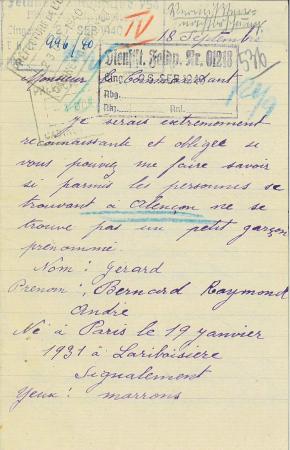 996/40
IV
18 Septembre
Dienstst. Feldp. Nr. 01218
Eing. 26 SEP 1940
Abg.
Monsieur le Commandant
Je serais extremement
reconnaissante et obligée si
vous pouviez me faire savoir
si parmis les personnes se
trouvant à Alençon ne se
trouve pas un petit garçon
prénommé.
Nom: Gerard
Prenom: Bernard Raymond
André
Né à Paris le 19 janvier
1931 à Lariboisière
Signalement
Yeux: marrons